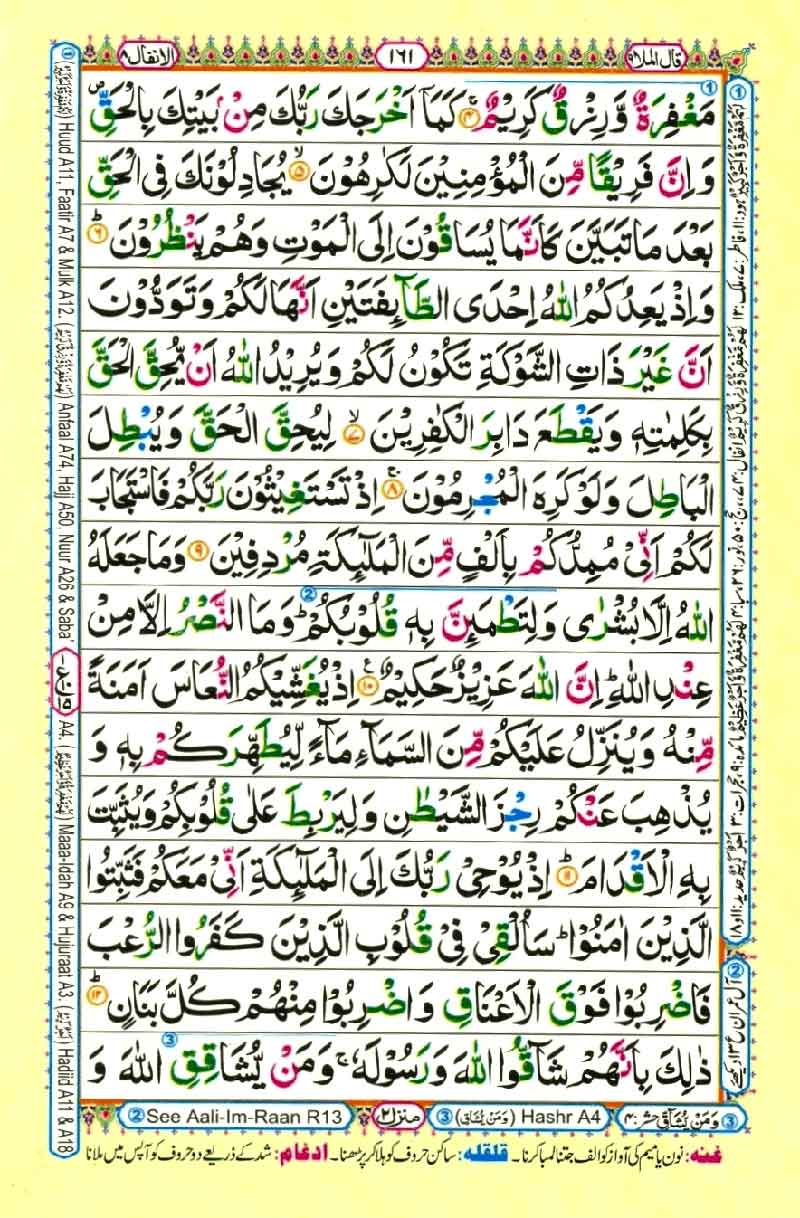 قال الملا ٩
١٦١
الانفال ٨
مَغْفِرَةٌ وَّرِزْقٌ كَرِيْمٌ ۚ ۝۴ كَمَاۤ اَخْرَجَكَ رَبُّكَ مِنْۢ بَيْتِكَ بِالْحَقِّ ۪
وَاِنَّ فَرِيْقًا مِّنَ الْمُؤْمِنِيْنَ لَكٰرِهُوْنَ ۙ ۝۵ يُجَادِلُوْنَكَ فِى الْحَقِّ
بَعْدَ مَا تَبَيَّنَ كَاَنَّمَا يُسَاقُوْنَ اِلَى الْمَوْتِ وَهُمْ يَنْظُرُوْنَ ؕ ۝۶
وَاِذْ يَعِدُكُمُ اللّٰهُ اِحْدَى الطَّآئِفَتَيْنِ اَنَّهَا لَكُمْ وَتَوَدُّوْنَ
اَنَّ غَيْرَ ذَاتِ الشَّوْكَةِ تَكُوْنُ لَكُمْ وَيُرِيْدُ اللّٰهُ اَنْ يُّحِقَّ الْحَقَّ
بِكَلِمٰتِهٖ وَيَقْطَعَ دَابِرَ الْكٰفِرِيْنَ ۙ ۝۷ لِيُحِقَّ الْحَقَّ وَيُبْطِلَ
الْبَاطِلَ وَلَوْ كَرِهَ الْمُجْرِمُوْنَ ۚ ۝۸ اِذْ تَسْتَغِيْثُوْنَ رَبَّكُمْ فَاسْتَجَابَ
لَكُمْ اَنِّىْ مُمِدُّكُمْ بِاَلْفٍ مِّنَ الْمَلٰٓئِكَةِ مُرْدِفِيْنَ ۝۹ وَمَا جَعَلَهُ
اللّٰهُ اِلَّا بُشْرٰى وَلِتَطْمَئِنَّ بِهٖ قُلُوْبُكُمْ ؕ وَمَا النَّصْرُ اِلَّا مِنْ
عِنْدِ اللّٰهِ ؕ اِنَّ اللّٰهَ عَزِيْزٌ حَكِيْمٌ ۝۱۰ اِذْ يُغَشِّيْكُمُ النُّعَاسَ اَمَنَةً
مِّنْهُ وَيُنَزِّلُ عَلَيْكُمْ مِّنَ السَّمَآءِ مَآءً لِّيُطَهِّرَكُمْ بِهٖ وَ
يُذْهِبَ عَنْكُمْ رِجْزَ الشَّيْطٰنِ وَلِيَرْبِطَ عَلٰى قُلُوْبِكُمْ وَيُثَبِّتَ
بِهِ الْاَقْدَامَ ۝۱۱ اِذْ يُوْحِىْ رَبُّكَ اِلَى الْمَلٰٓئِكَةِ اَنِّىْ مَعَكُمْ فَثَبِّتُوا
الَّذِيْنَ اٰمَنُوْا ؕ سَاُلْقِىْ فِىْ قُلُوْبِ الَّذِيْنَ كَفَرُوا الرُّعْبَ
فَاضْرِبُوْا فَوْقَ الْاَعْنَاقِ وَاضْرِبُوْا مِنْهُمْ كُلَّ بَنَانٍ ؕ ۝۱۲
ذٰلِكَ بِاَنَّهُمْ شَآقُّوا اللّٰهَ وَرَسُوْلَهٗ ۚ وَمَنْ يُّشَاقِقِ اللّٰهَ وَ
Huud A11, Faatir A7 & Mulk A12. Anfaal A74, Hajj A50, Nuur A26 & Saba' A4. Maaa-Idah A9 & Hujuraat A3. Hadiid A11 & A18
③ وَمَنْ يُّشَاقِّ حشر: ۴
③ (وَمَنْ يُّشَاقِّ) Hashr A4
منزل ٢
② See Aali-Im-Raan R13
غنه: نون یا میم کی آواز کو الف جتنا لمبا کرنا۔ قلقله: ساکن حروف کو ہلا کر پڑھنا۔ ادغام: شد کے ذریعے دو حروف کو آپس میں ملانا